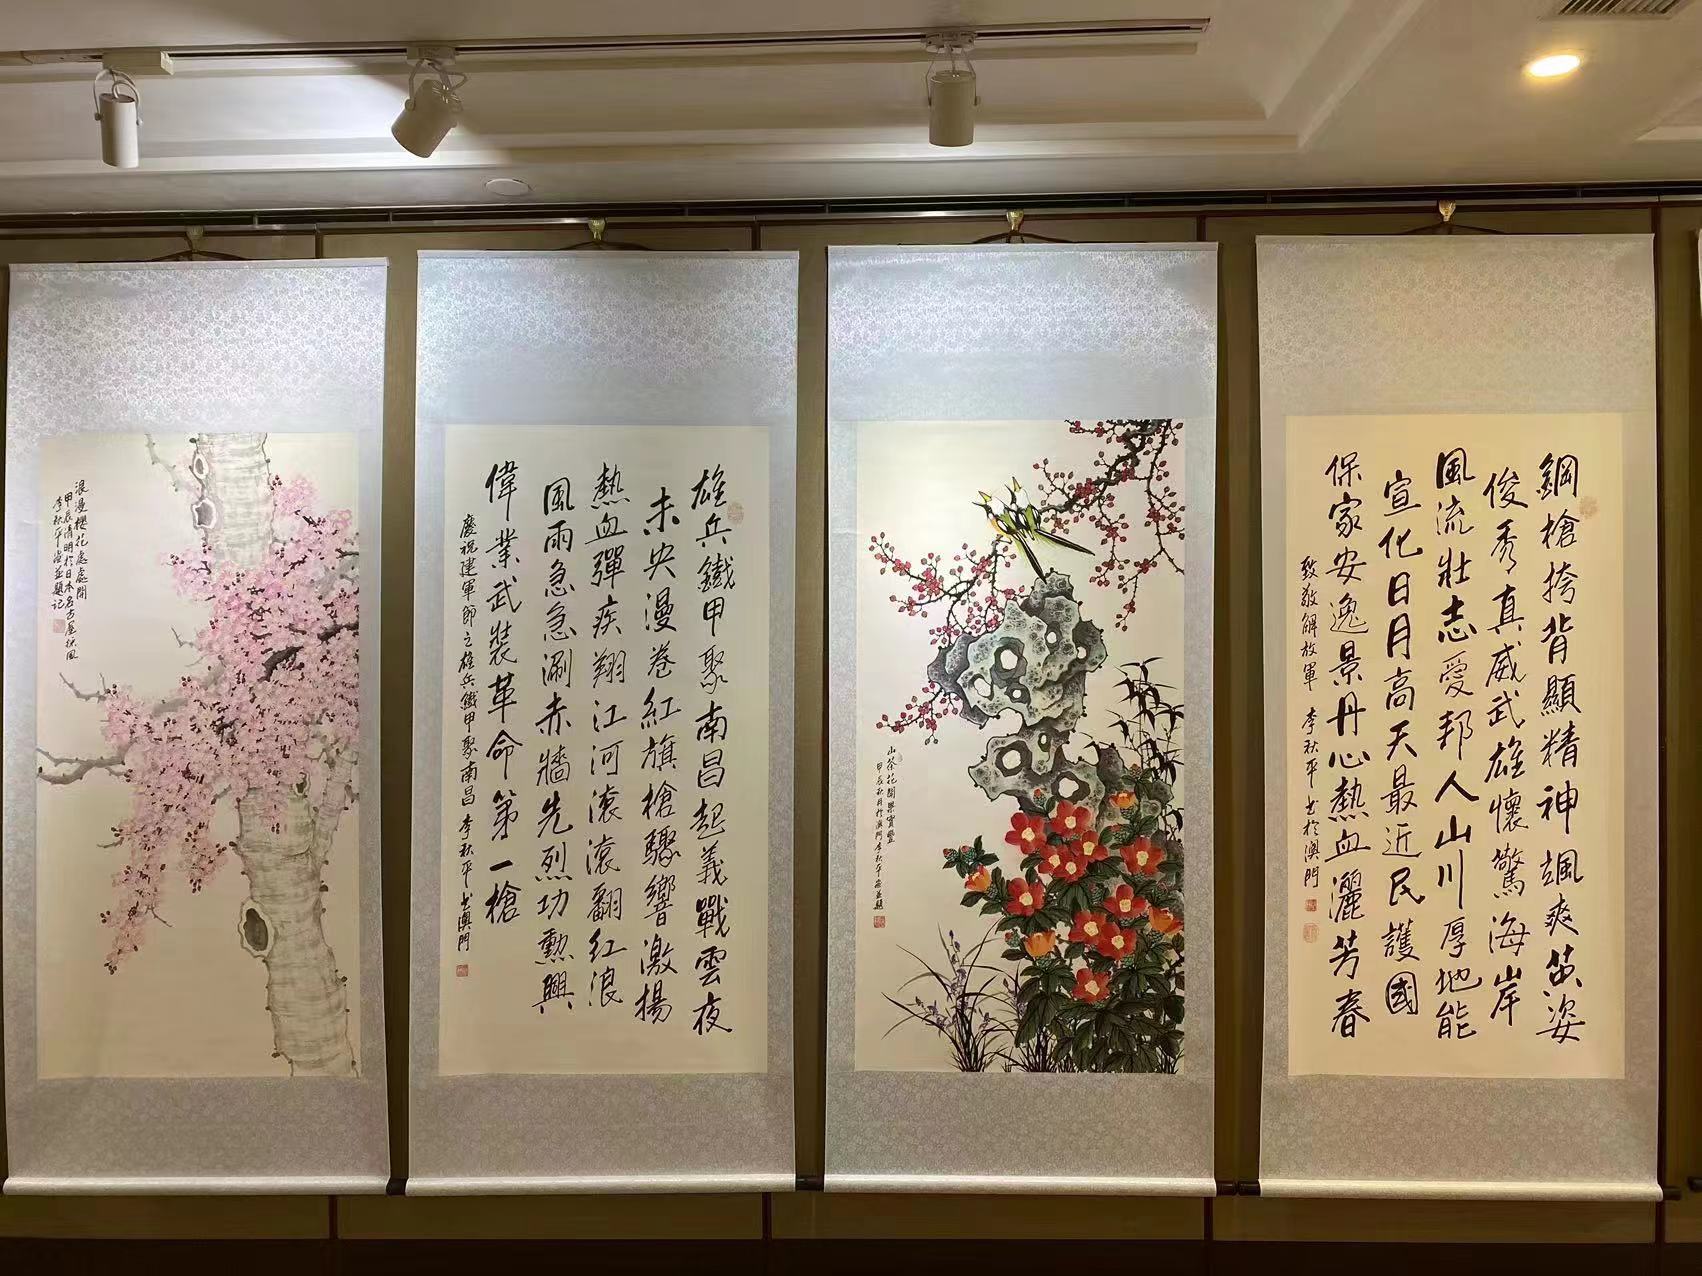 浪漫櫻花處處開
甲辰清明於日本名古屋採風
李秋平畫並題記
雄兵鐵甲聚南昌起義戰雲夜
未央漫卷紅旗槍驟響激揚
熱血彈疾翔江河滾滾翻紅浪
風雨急急涮赤牆先烈功勲興
偉業武裝革命第一槍
慶祝建軍節之雄兵鐵甲聚南昌 李秋平书澳門
山茶花開果實豐
甲辰秋月於澳門李秋平畫並題
鋼槍挎背顯精神颯爽英姿
俊秀真威武雄懷驚海岸
風流壯志愛邦人山川厚地能
宣化日月高天最近民護國
保家安逸景丹心熱血灑芳春
致敬解放軍 李秋平书於澳門